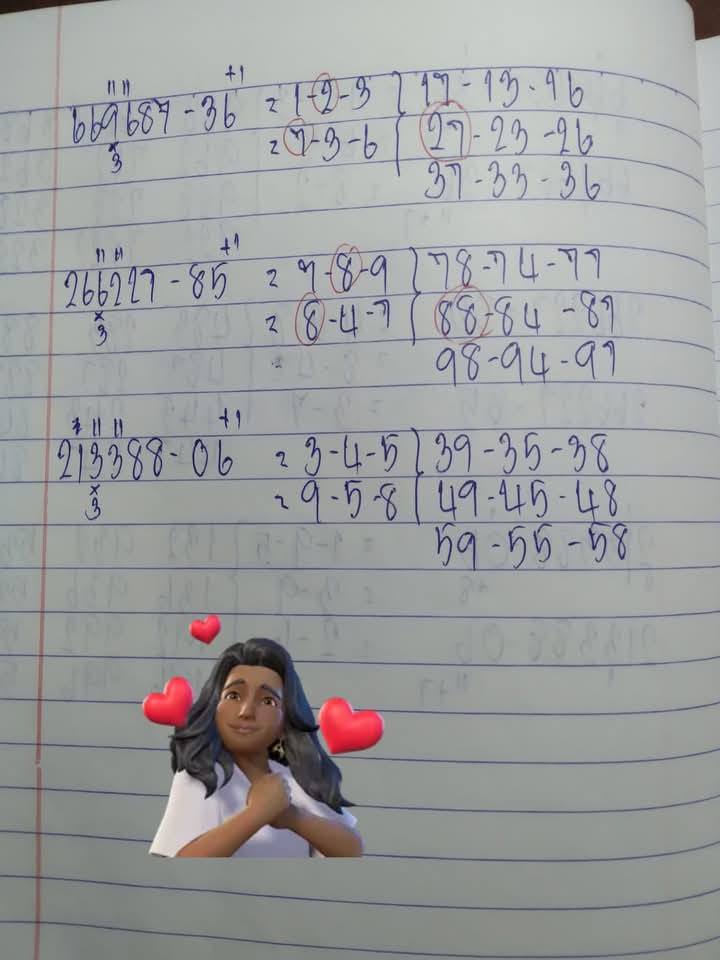 " " +1
669687 - 36 = 1-2-3 | 17 - 13 - 16
x
3 = 7-3-6 | 27 - 23 - 26
37 - 33 - 36
" " +1
266227 - 85 = 7-8-9 | 78-74-77
x
3 = 8-4-7 | 88-84-87
98-94-97
x " " +1
213388 - 06 = 3-4-5 | 39-35-38
x
3 = 9-5-8 | 49-45-48
59-55-58